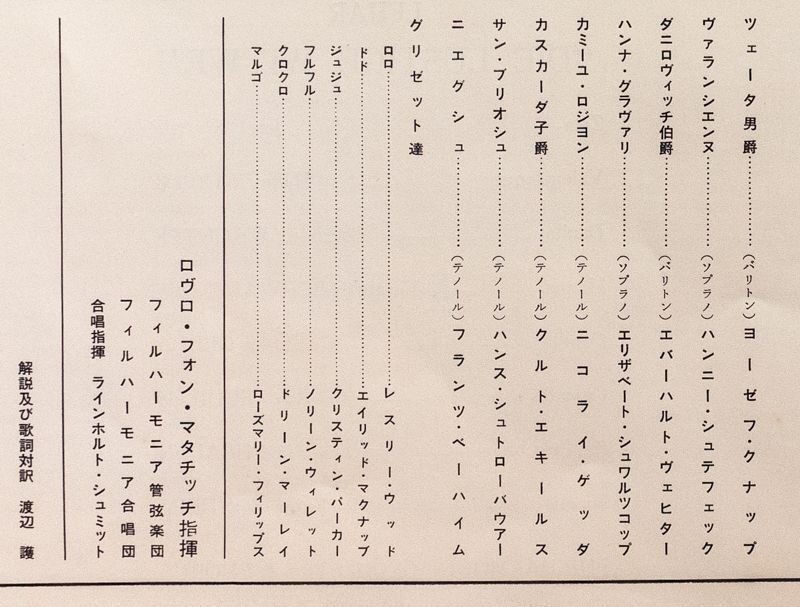 ツェータ男爵………………(バリトン)ヨーゼフ・クナップ
ヴァランシエンヌ………………(ソプラノ)ハンニー・シュテフェック
ダニロヴィッチ伯爵………………(バリトン)エバーハルト・ヴェヒター
ハンナ・グラヴァリ………………(ソプラノ)エリザベート・シュワルツコップ
カミーユ・ロジヨン………………(テノール)ニコライ・ゲッダ
カスカーダ子爵………………(テノール)クルト・エキールス
サン・ブリオシュ………………(テノール)ハンス・シュトローバウアー
ニエグシュ………………(テノール)フランツ・ベーハイム
グリゼット達
ロロ………………レスリー・ウッド
ドド………………エイリッド・マクナップ
ジュジュ………………クリスティン・パーカー
フルフル………………ノリーン・ウィレット
クロクロ………………ドリーン・マーレイ
マルゴ………………ローズマリー・フィリップス
ロヴロ・フォン・マタチッチ指揮
フィルハーモニア管弦楽団
フィルハーモニア合唱団
合唱指揮 ラインホルト・シュミット
解説及び歌詞対訳 渡辺 護